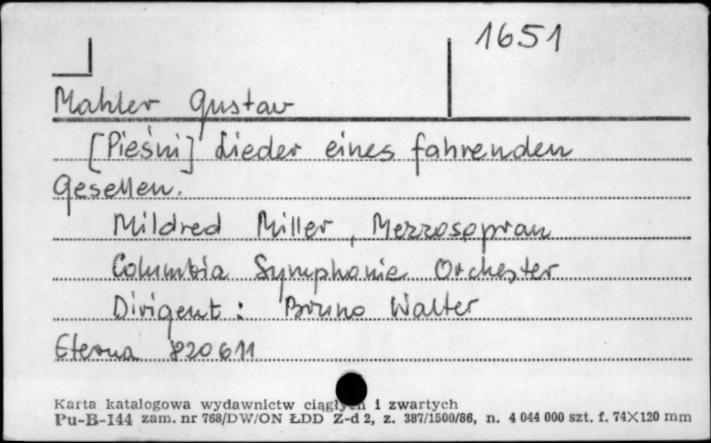 1651
Mahler Gustav
[Pieśni] Lieder eines fahrenden
Gesellen.
Mildred Miller, Mezzosopran
Columbia Symphonie Orchester
Dirigent: Bruno Walter
Eterna 820611
Karta katalogowa wydawnictw ciągłych i zwartych
Pu-B-144 zam. nr 768/DW/ON ŁDD Z-d 2, z. 387/1500/86, n. 4 044 000 szt. f. 74X120 mm